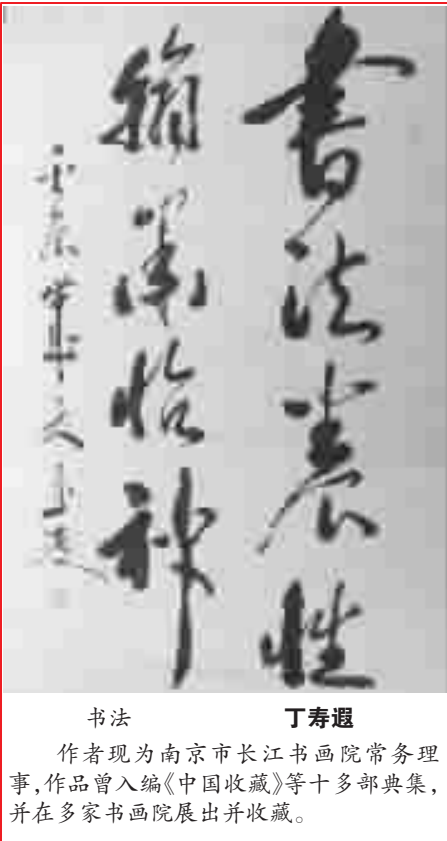 書法養性
翰墨怡神
书法 丁寿遐
作者现为南京市长江书画院常务理
事,作品曾入编《中国收藏》等十多部典集,
并在多家书画院展出并收藏。